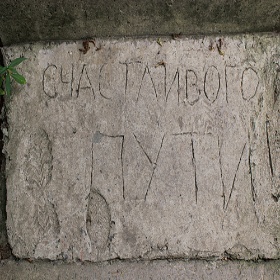 СЧАСТЛИВОГО
ПУТИ